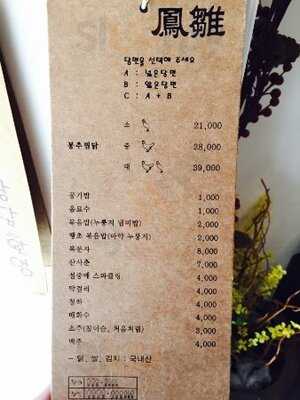 鳳雛
당면을 선택해 주세요
A : 넓은당면
B : 얇은당면
C : A + B
소 21,000
봉추찜닭 중 28,000
대 39,000
공기밥 1,000
음료수 1,000
볶음밥(누룽지 냄비밥) 2,000
2,000
복분자 8,000
산사춘 7,000
설중매 스파클링 4,000
막걸리 4,000
청하 4,000
매화수 4,000
소주(참이슬, 처음처럼) 3,000
맥주 4,000
– 닭, 쌀, 김치 : 국내산